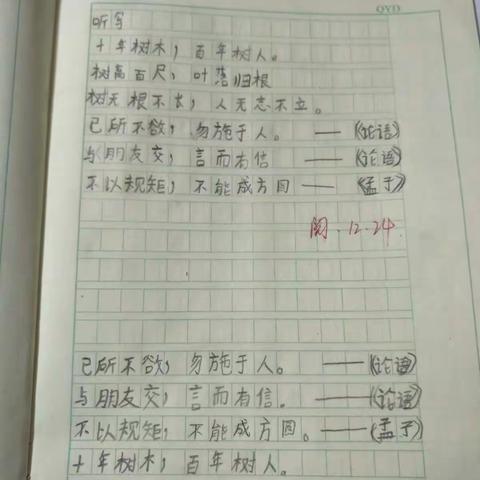 QYD
听写
十年树木，百年树人。
树高百尺，叶落归根
树无根不长，人无志不立。
己所不欲，勿施于人。——《论语》
与朋友交，言而有信——《论语》
不以规矩，不能成方圆——《孟子》
阅.12.24
己所不欲，勿施于人。——《论语》
与朋友交，言而有信。——《论语》
不以规矩，不能成方圆。——《孟子》
十年树木，百年树人。